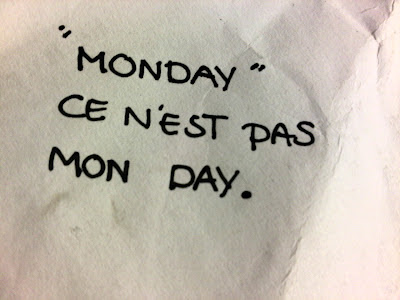 "MONDAY"
CE N'EST PAS
MON DAY.